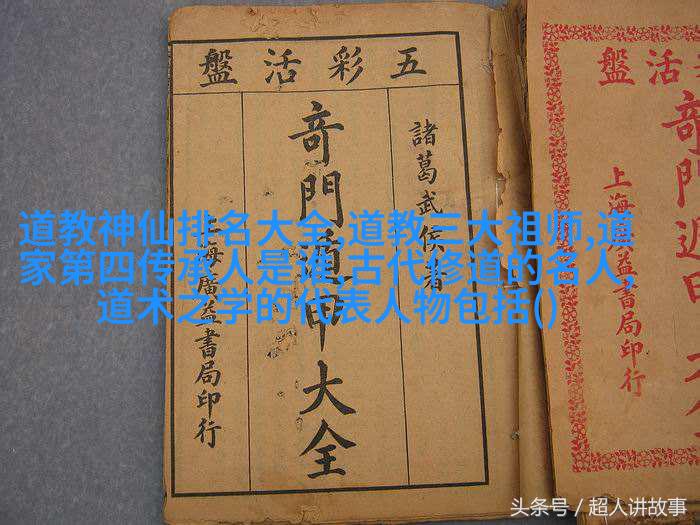 五彩活盤
諸葛武侯著
奇門遁甲大全
上海廣益書局印行
活盤
奇門遁甲
上海廣益書局印行
道教神仙排名大全,道教三大祖师,道
家第四传承人是谁,古代修道的名人,
道术之学的代表人物包括()
头条号 / 超人讲故事